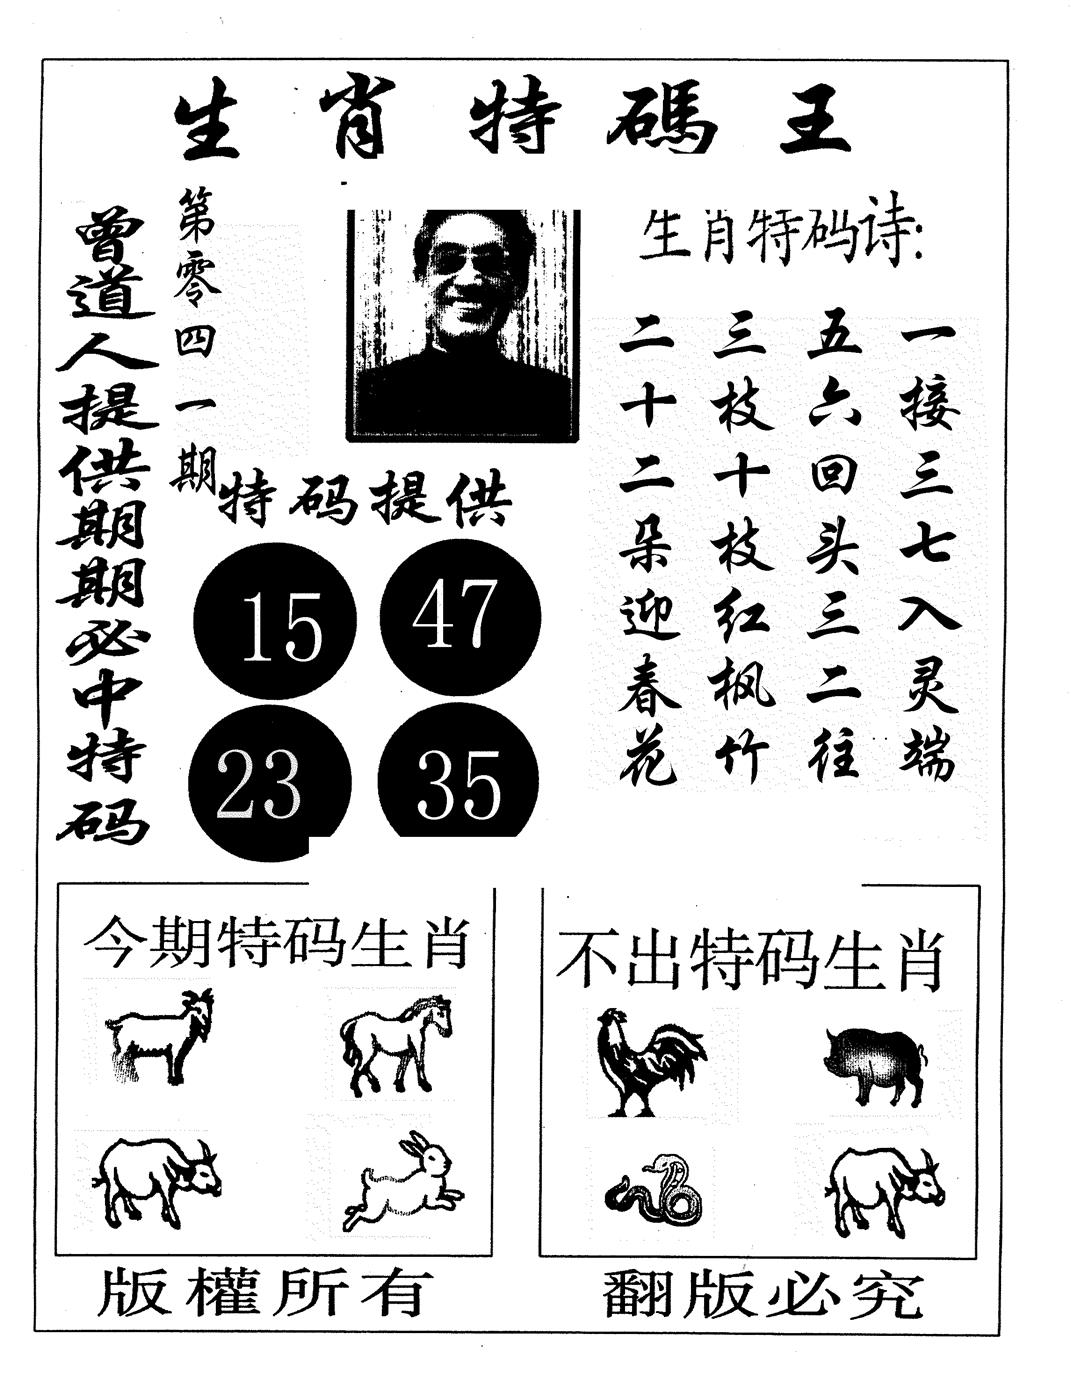 生肖特碼王
曾道人提供期期必中特码
第零四一期
生肖特码诗:
一接三七入灵端
五六回头三二往
三枝十枝红枫竹
二十二朵迎春花
特码提供
15 47
23 35
今期特码生肖
不出特码生肖
版權所有
翻版必究